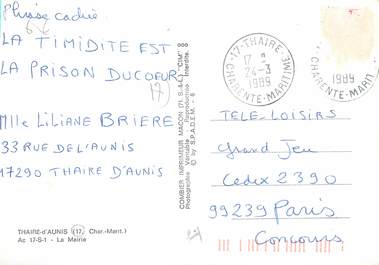 Phrase cachée
LA TIMIDITE EST
LA PRISON DU COEUR
Mlle LILIANE BRIERE
33 RUE DE L'AUNIS
17290 THAIRE D'AUNIS
THAIRE-d'AUNIS (17, Char.-Marit.)
Ac 17-S-1 - La Mairie
COMBIER IMPRIMEUR MACON (71, S.-&-L.) "CIM"
Photographie Véritable - Reproduction Interdite
© by S.P.A.D.E.M.
17-THAIRE-
17 H
24-3
1989
CHARENTE-MARITIME
1989
CHARENTE-MARIT
TELE-LOISIRS
Grand Jeu
Cedex 2390
99239 Paris
Concours